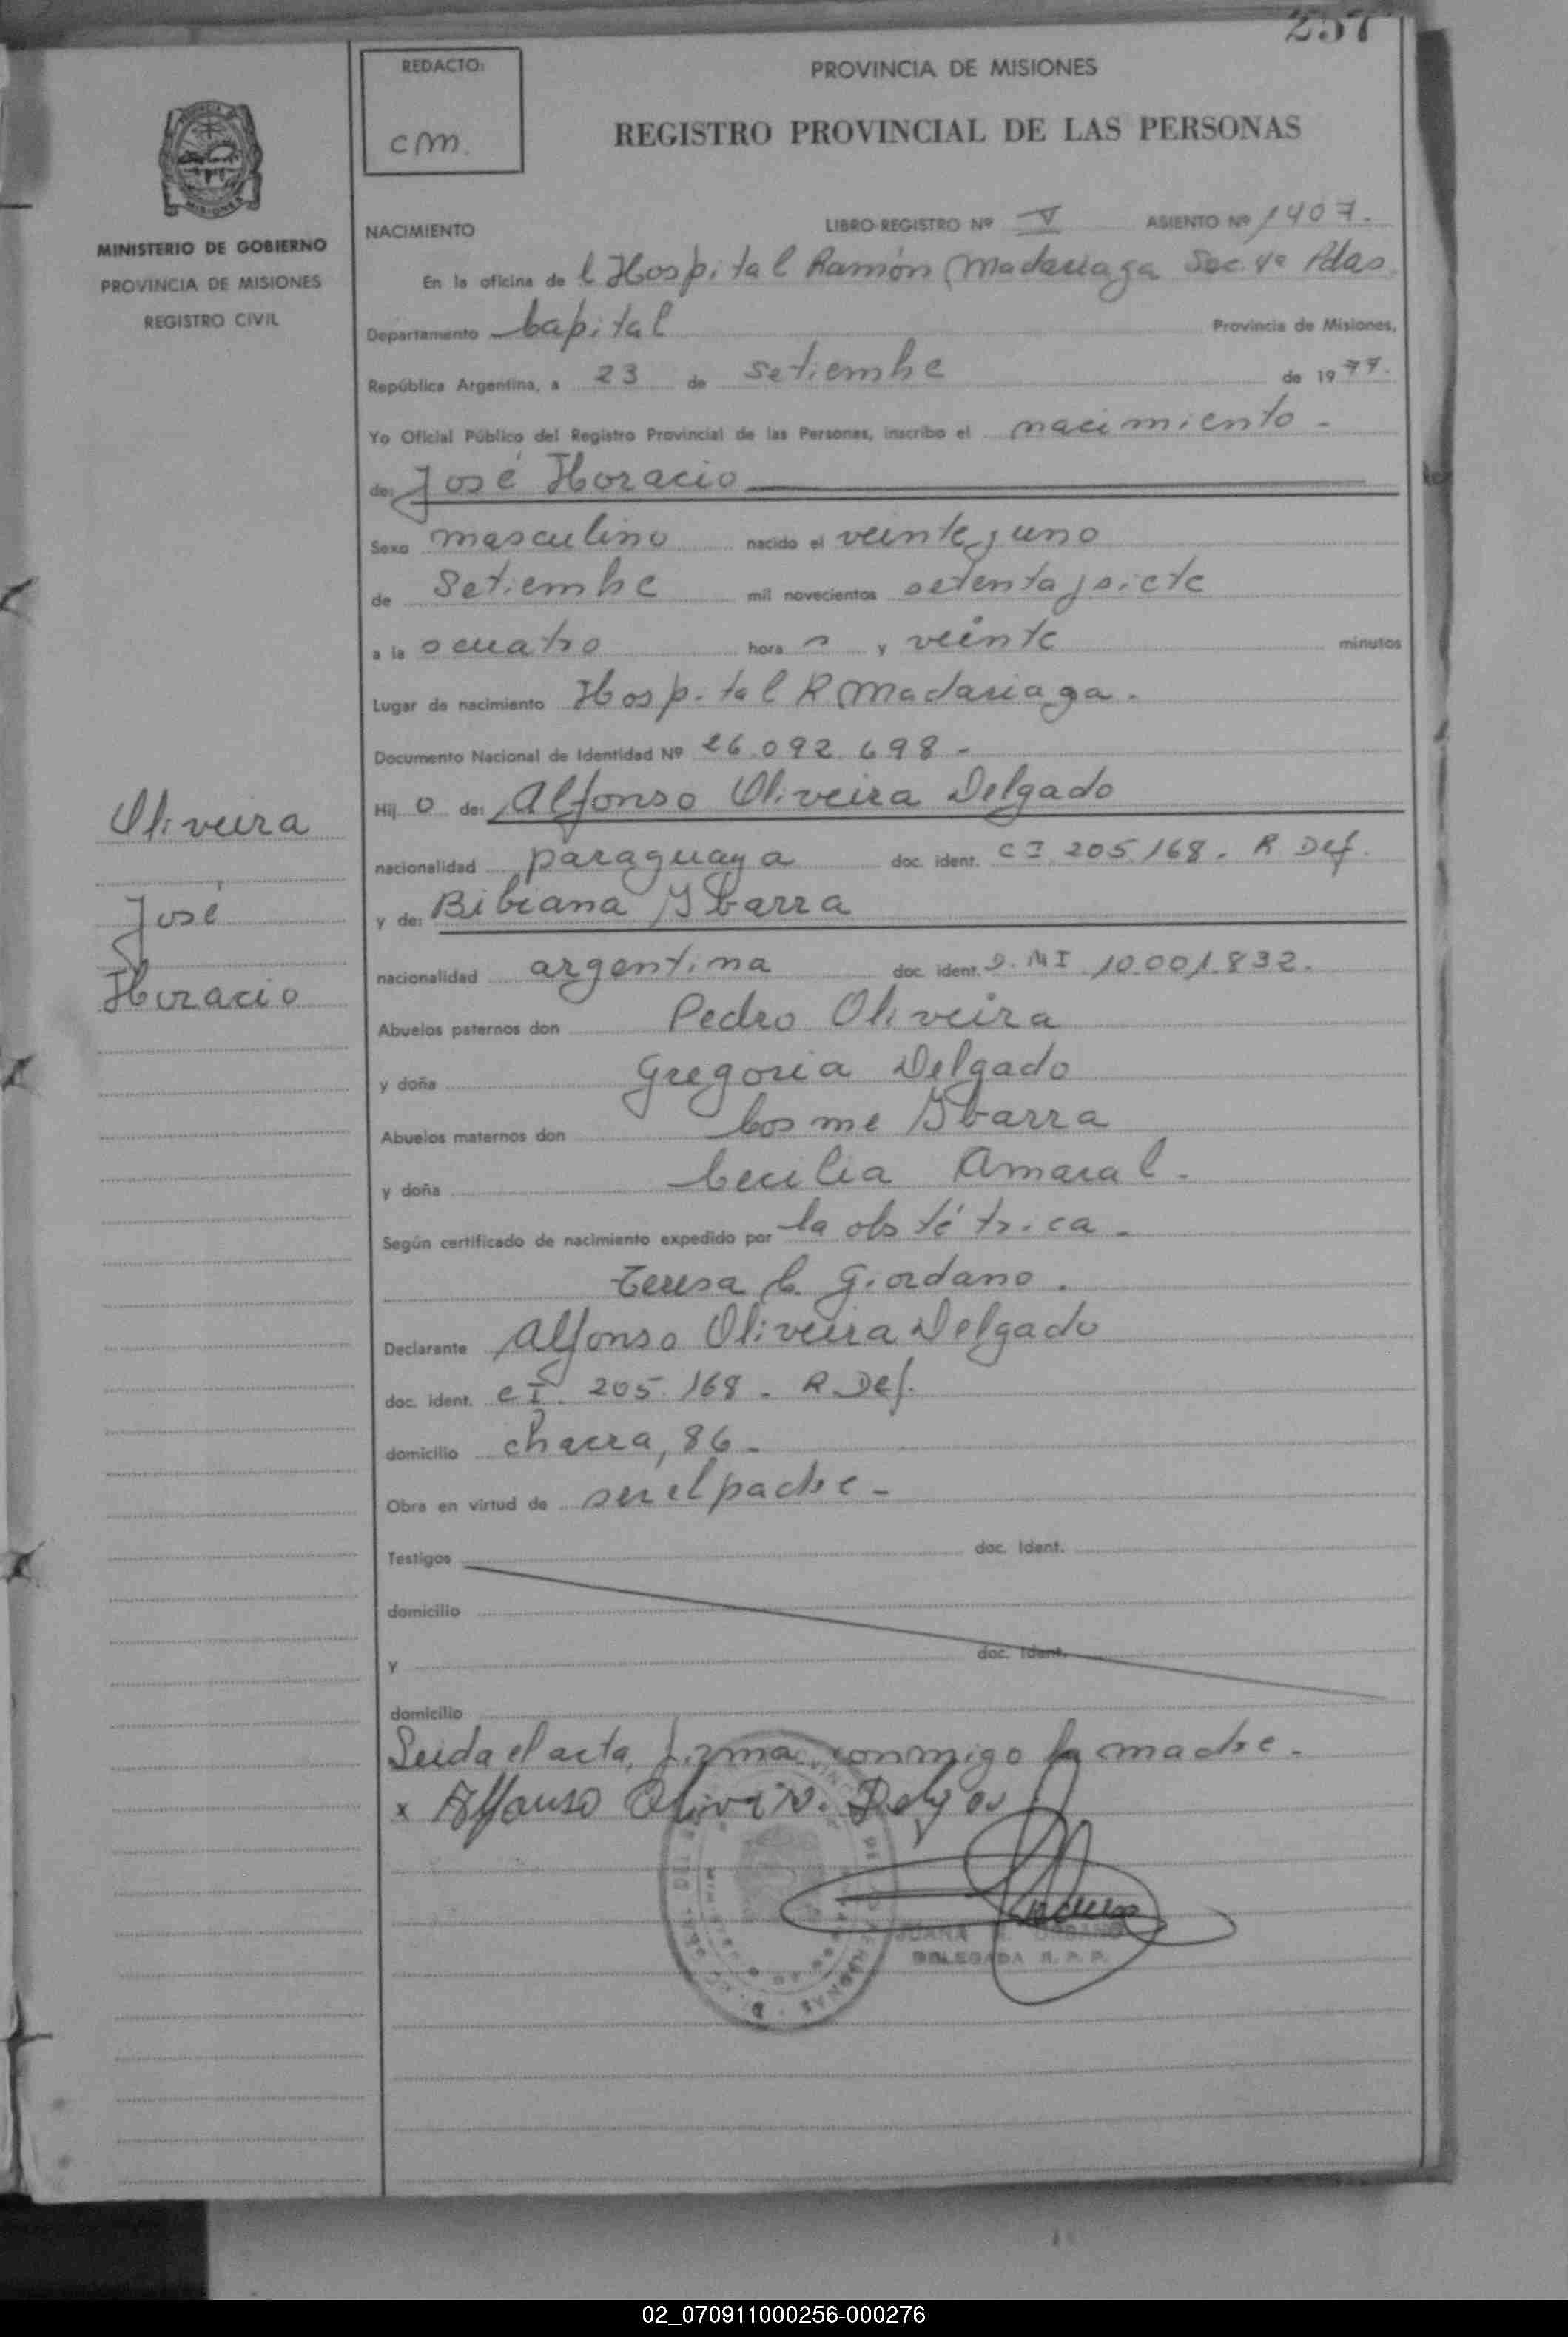 257
REDACTO:
cm.
PROVINCIA DE MISIONES
REGISTRO PROVINCIAL DE LAS PERSONAS
MINISTERIO DE GOBIERNO
PROVINCIA DE MISIONES
REGISTRO CIVIL
NACIMIENTO LIBRO-REGISTRO Nº V ASIENTO Nº 1407.
En la oficina de l Hospital Ramón Madariaga Sec. 4ª Pdas.
Departamento Capital Provincia de Misiones,
República Argentina, a 23 de Setiembre de 1977.
Yo Oficial Público del Registro Provincial de las Personas, inscribo el nacimiento -
de: José Horacio
Sexo masculino nacido el veinte y uno
de Setiembre mil novecientos setenta y siete
a la s cuatro hora s y veinte minutos
Lugar de nacimiento Hospital R Madariaga.
Documento Nacional de Identidad Nº 26.092.698 -
Hij o de: Alfonso Oliveira Delgado
nacionalidad paraguaya doc. ident. C I 205.168. R Def.
y de: Bibiana Ybarra
nacionalidad argentina doc. ident. D. NI 10.001.832.
Abuelos paternos don Pedro Oliveira
y doña Gregoria Delgado
Abuelos maternos don Cosme Ybarra
y doña Cecilia Amaral.
Según certificado de nacimiento expedido por la obstétrica -
Teresa C. Giordano.
Declarante Alfonso Oliveira Delgado
doc. ident. C.I. 205.168. R Def.
domicilio chacra, 86 -
Obra en virtud de ser el padre -
Testigos doc. Ident.
domicilio
y doc. Ident.
domicilio
Leida el acta, firma conmigo la madre -
x Alfonso Oliveira Delgado
JUANA
DELEGADA R. P. P.
Oliveira
José
Horacio
02_070911000256-000276